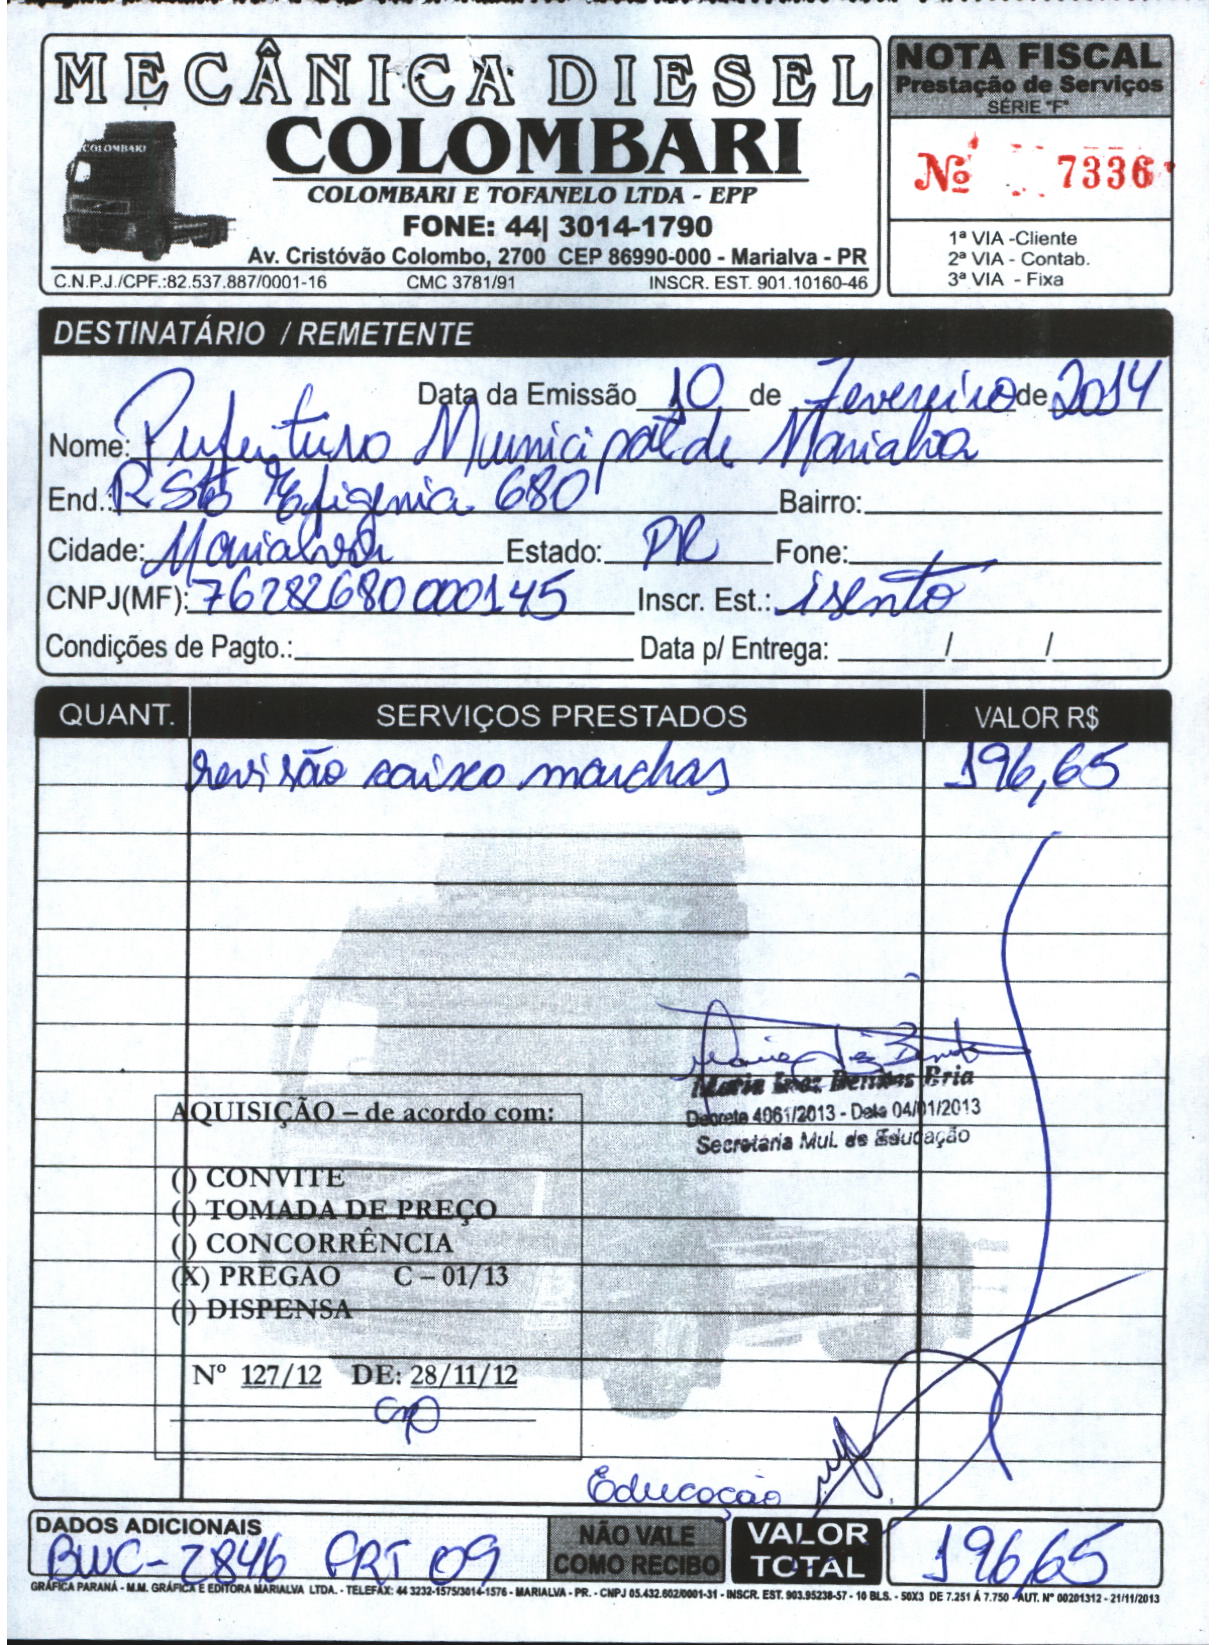 MECÂNICA DIESEL
COLOMBARI
COLOMBARI
COLOMBARI E TOFANELO LTDA - EPP
FONE: 44| 3014-1790
Av. Cristóvão Colombo, 2700 CEP 86990-000 - Marialva - PR
C.N.P.J./CPF.:82.537.887/0001-16 CMC 3781/91 INSCR. EST. 901.10160-46
NOTA FISCAL
Prestação de Serviços
SÉRIE "F"
Nº 7336
1ª VIA -Cliente
2ª VIA - Contab.
3ª VIA - Fixa
DESTINATÁRIO / REMETENTE
Data da Emissão 10 de Fevereiro de 2014
Nome: Prefeitura Municipal de Marialva
End.: R Sta Efigenia 680 Bairro:
Cidade: Marialva Estado: PR Fone:
CNPJ(MF): 76282680000145 Inscr. Est.: isento
Condições de Pagto.: Data p/ Entrega: / /
QUANT. SERVIÇOS PRESTADOS VALOR R$
revisão caixa marchas 196,65
Maria Inez Bentos Bria
Decreto 4061/2013 - Data 04/01/2013
Secretária Mul. de Educação
AQUISIÇÃO – de acordo com:
() CONVITE
() TOMADA DE PREÇO
() CONCORRÊNCIA
(X) PREGÃO C – 01/13
() DISPENSA
Nº 127/12 DE: 28/11/12
Educação
DADOS ADICIONAIS
BWC-2846 FRT 09
NÃO VALE
COMO RECIBO
VALOR
TOTAL
196,65
GRÁFICA PARANÁ - M.M. GRÁFICA E EDITORA MARIALVA LTDA. - TELEFAX: 44 3232-1575/3014-1576 - MARIALVA - PR. - CNPJ 05.432.602/0001-31 - INSCR. EST. 903.95238-57 - 10 BLS. - 50X3 DE 7.251 Á 7.750 - AUT. Nº 00201312 - 21/11/2013